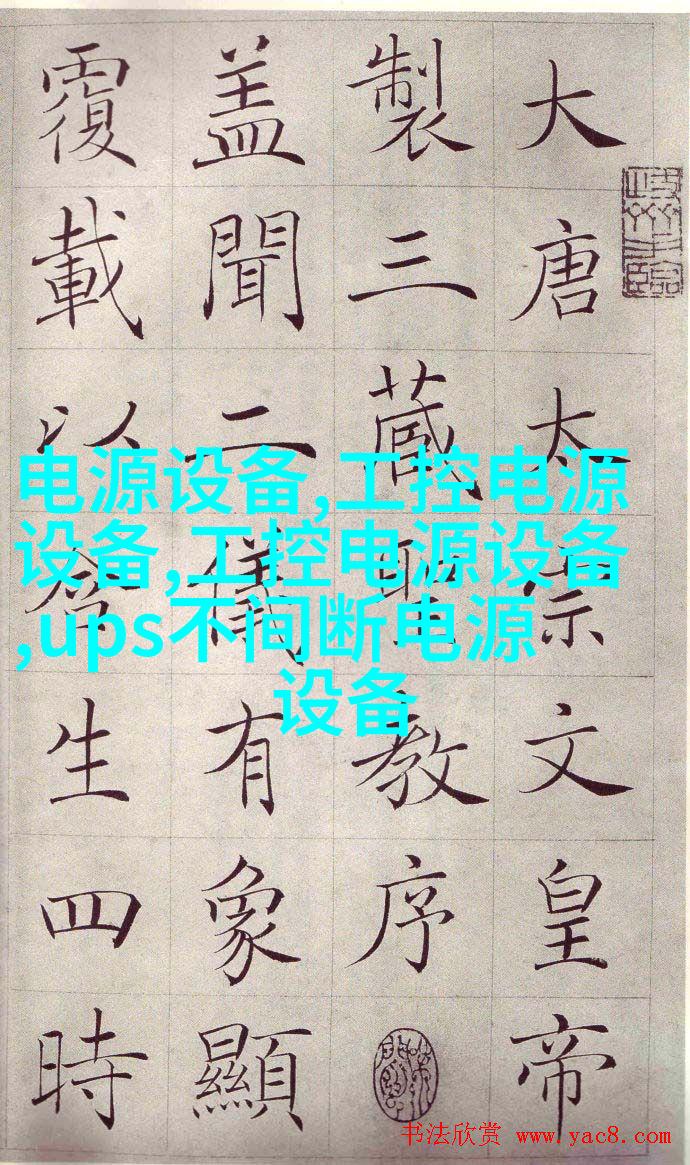 大唐太宗文皇帝
製三藏聖教序
盖聞二儀有象顯
覆載以含生四時
电源设备,工控电源
设备,工控电源设备
,ups不间断电源
设备
书法欣赏 www.yac8.com